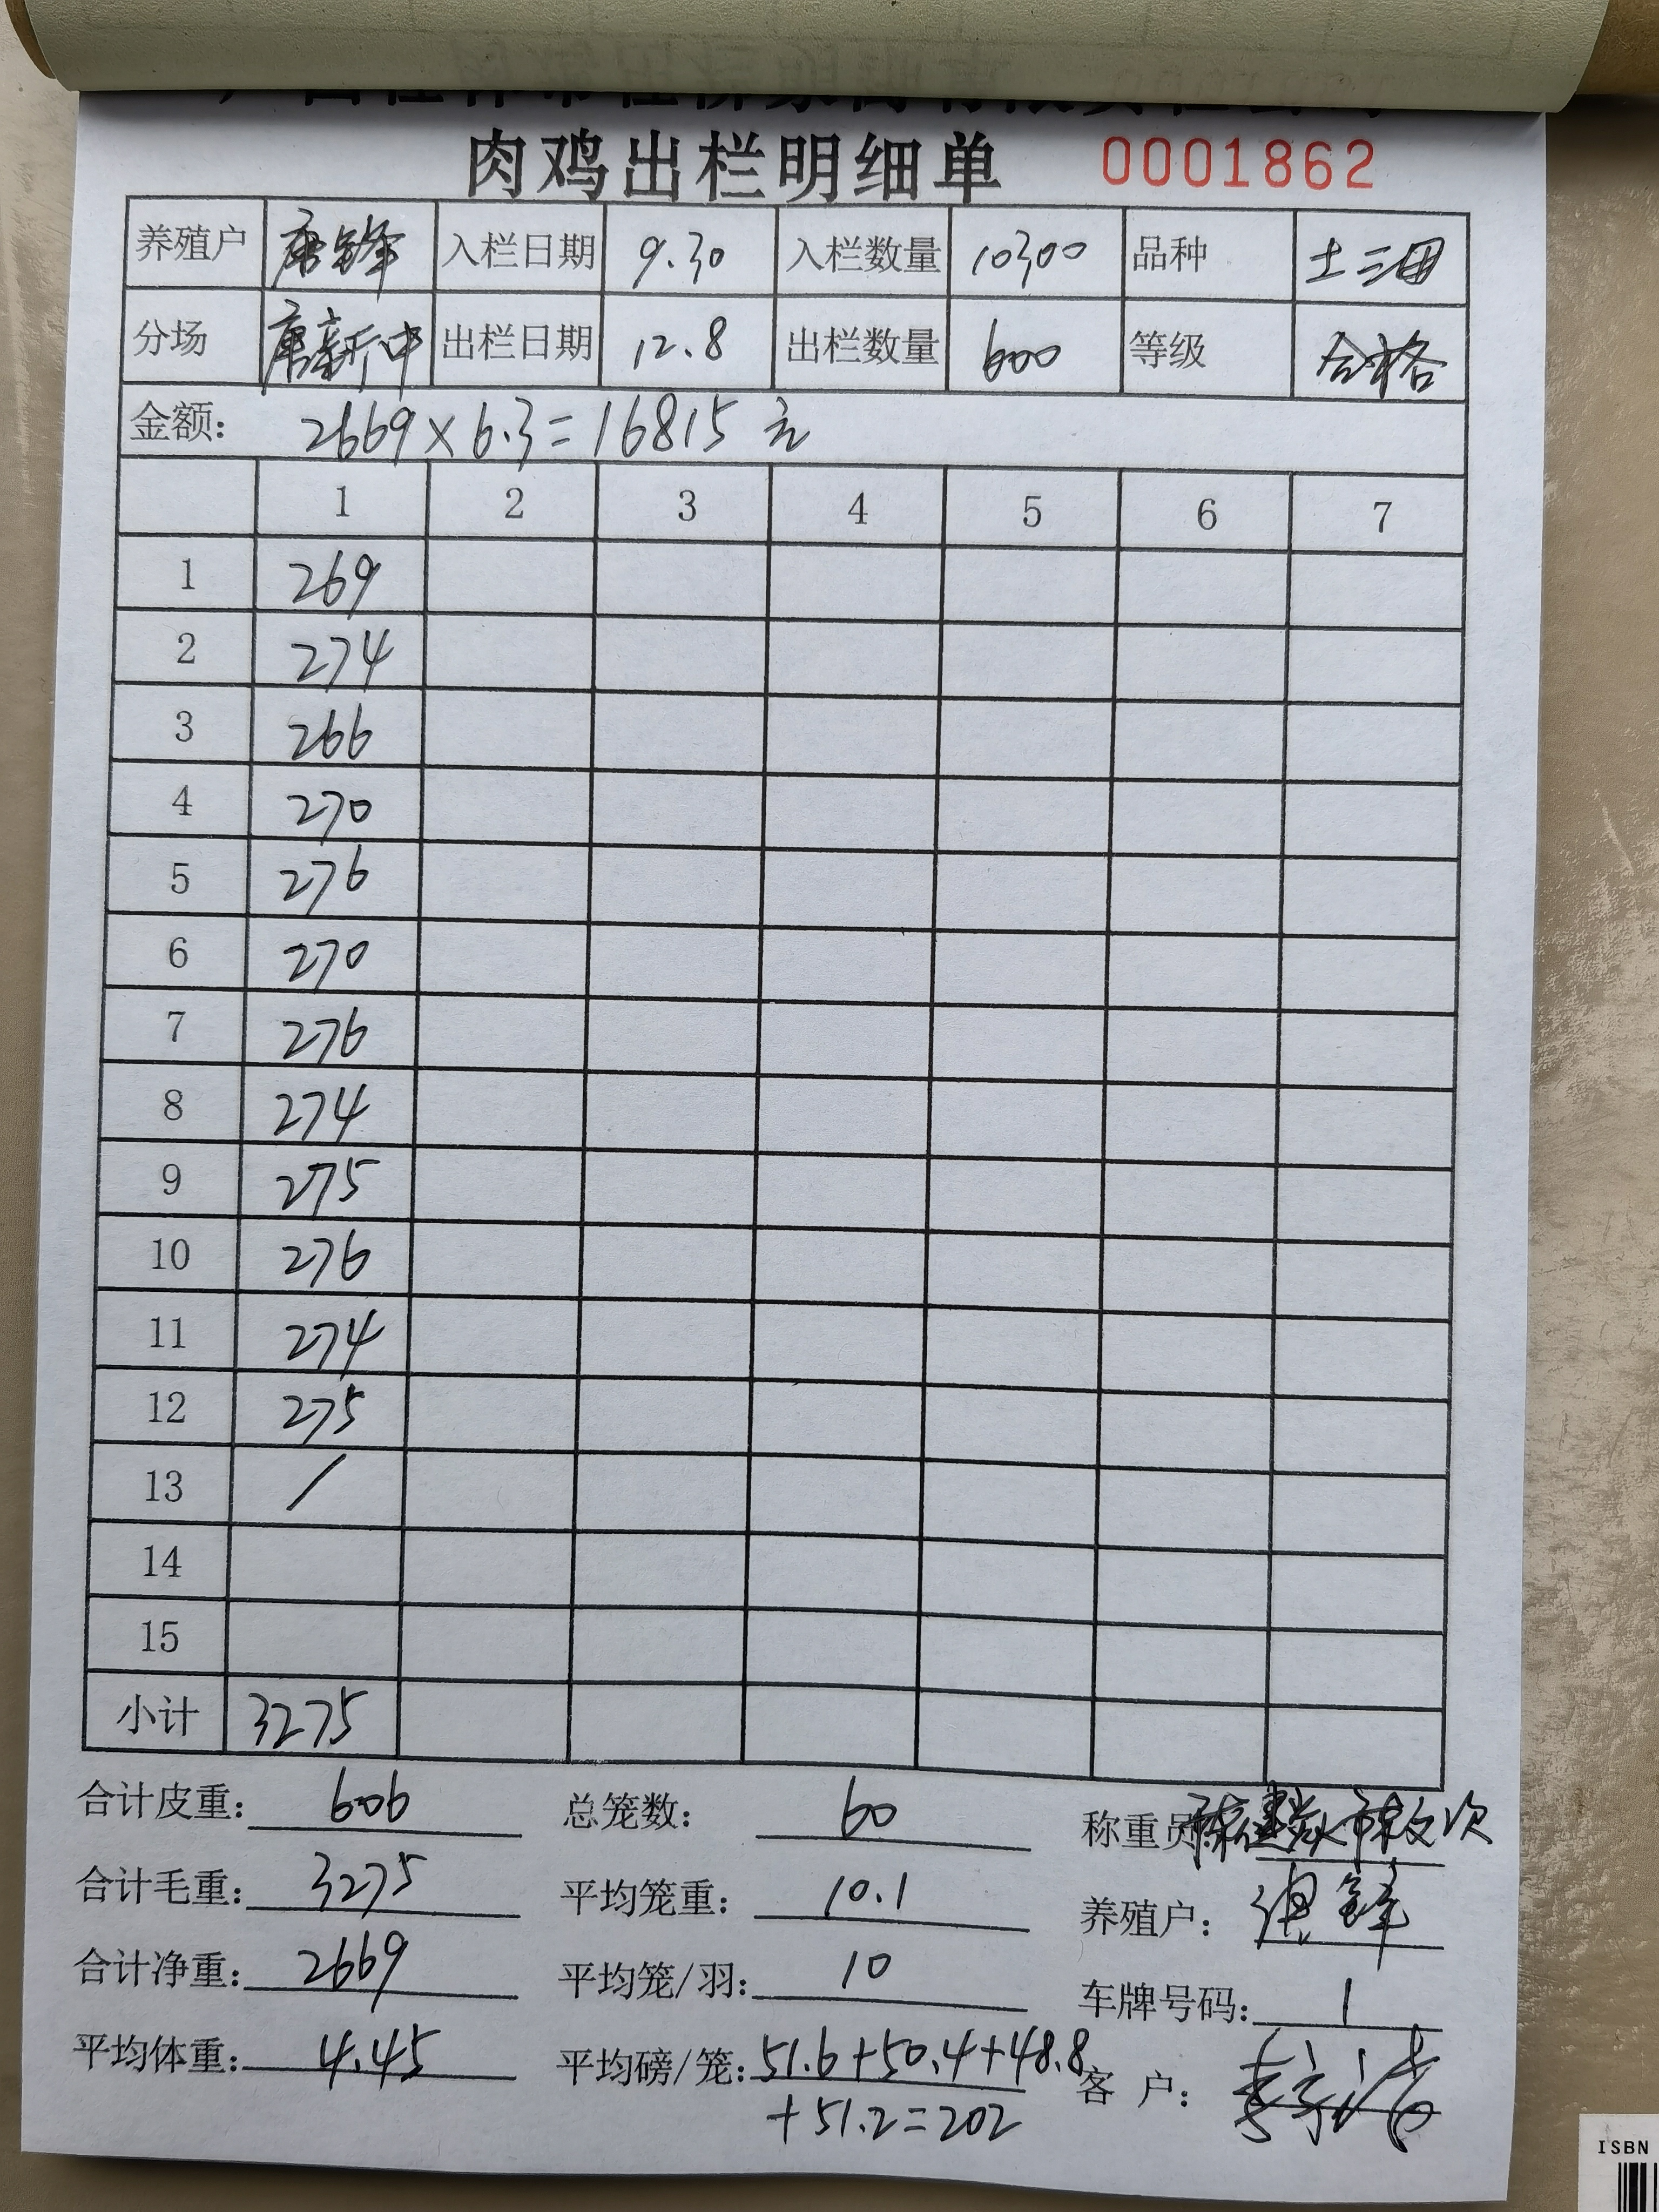 肉鸡出栏明细单 0001862
养殖户 唐锋 入栏日期 9.30 入栏数量 10300 品种 土三
分场 唐新中 出栏日期 12.8 出栏数量 600 等级 合格
金额: 2669×6.3=16815 元
1 2 3 4 5 6 7
1 269
2 274
3 266
4 270
5 276
6 270
7 276
8 274
9 275
10 276
11 274
12 275
13 /
14
15
小计 3275
合计皮重: 606 总笼数: 60 称重员:
合计毛重: 3275 平均笼重: 10.1 养殖户: 唐锋
合计净重: 2669 平均笼/羽: 10 车牌号码: 1
平均体重: 4.45 平均磅/笼: 51.6+50.4+48.8 客 户:
+51.2=202
ISBN